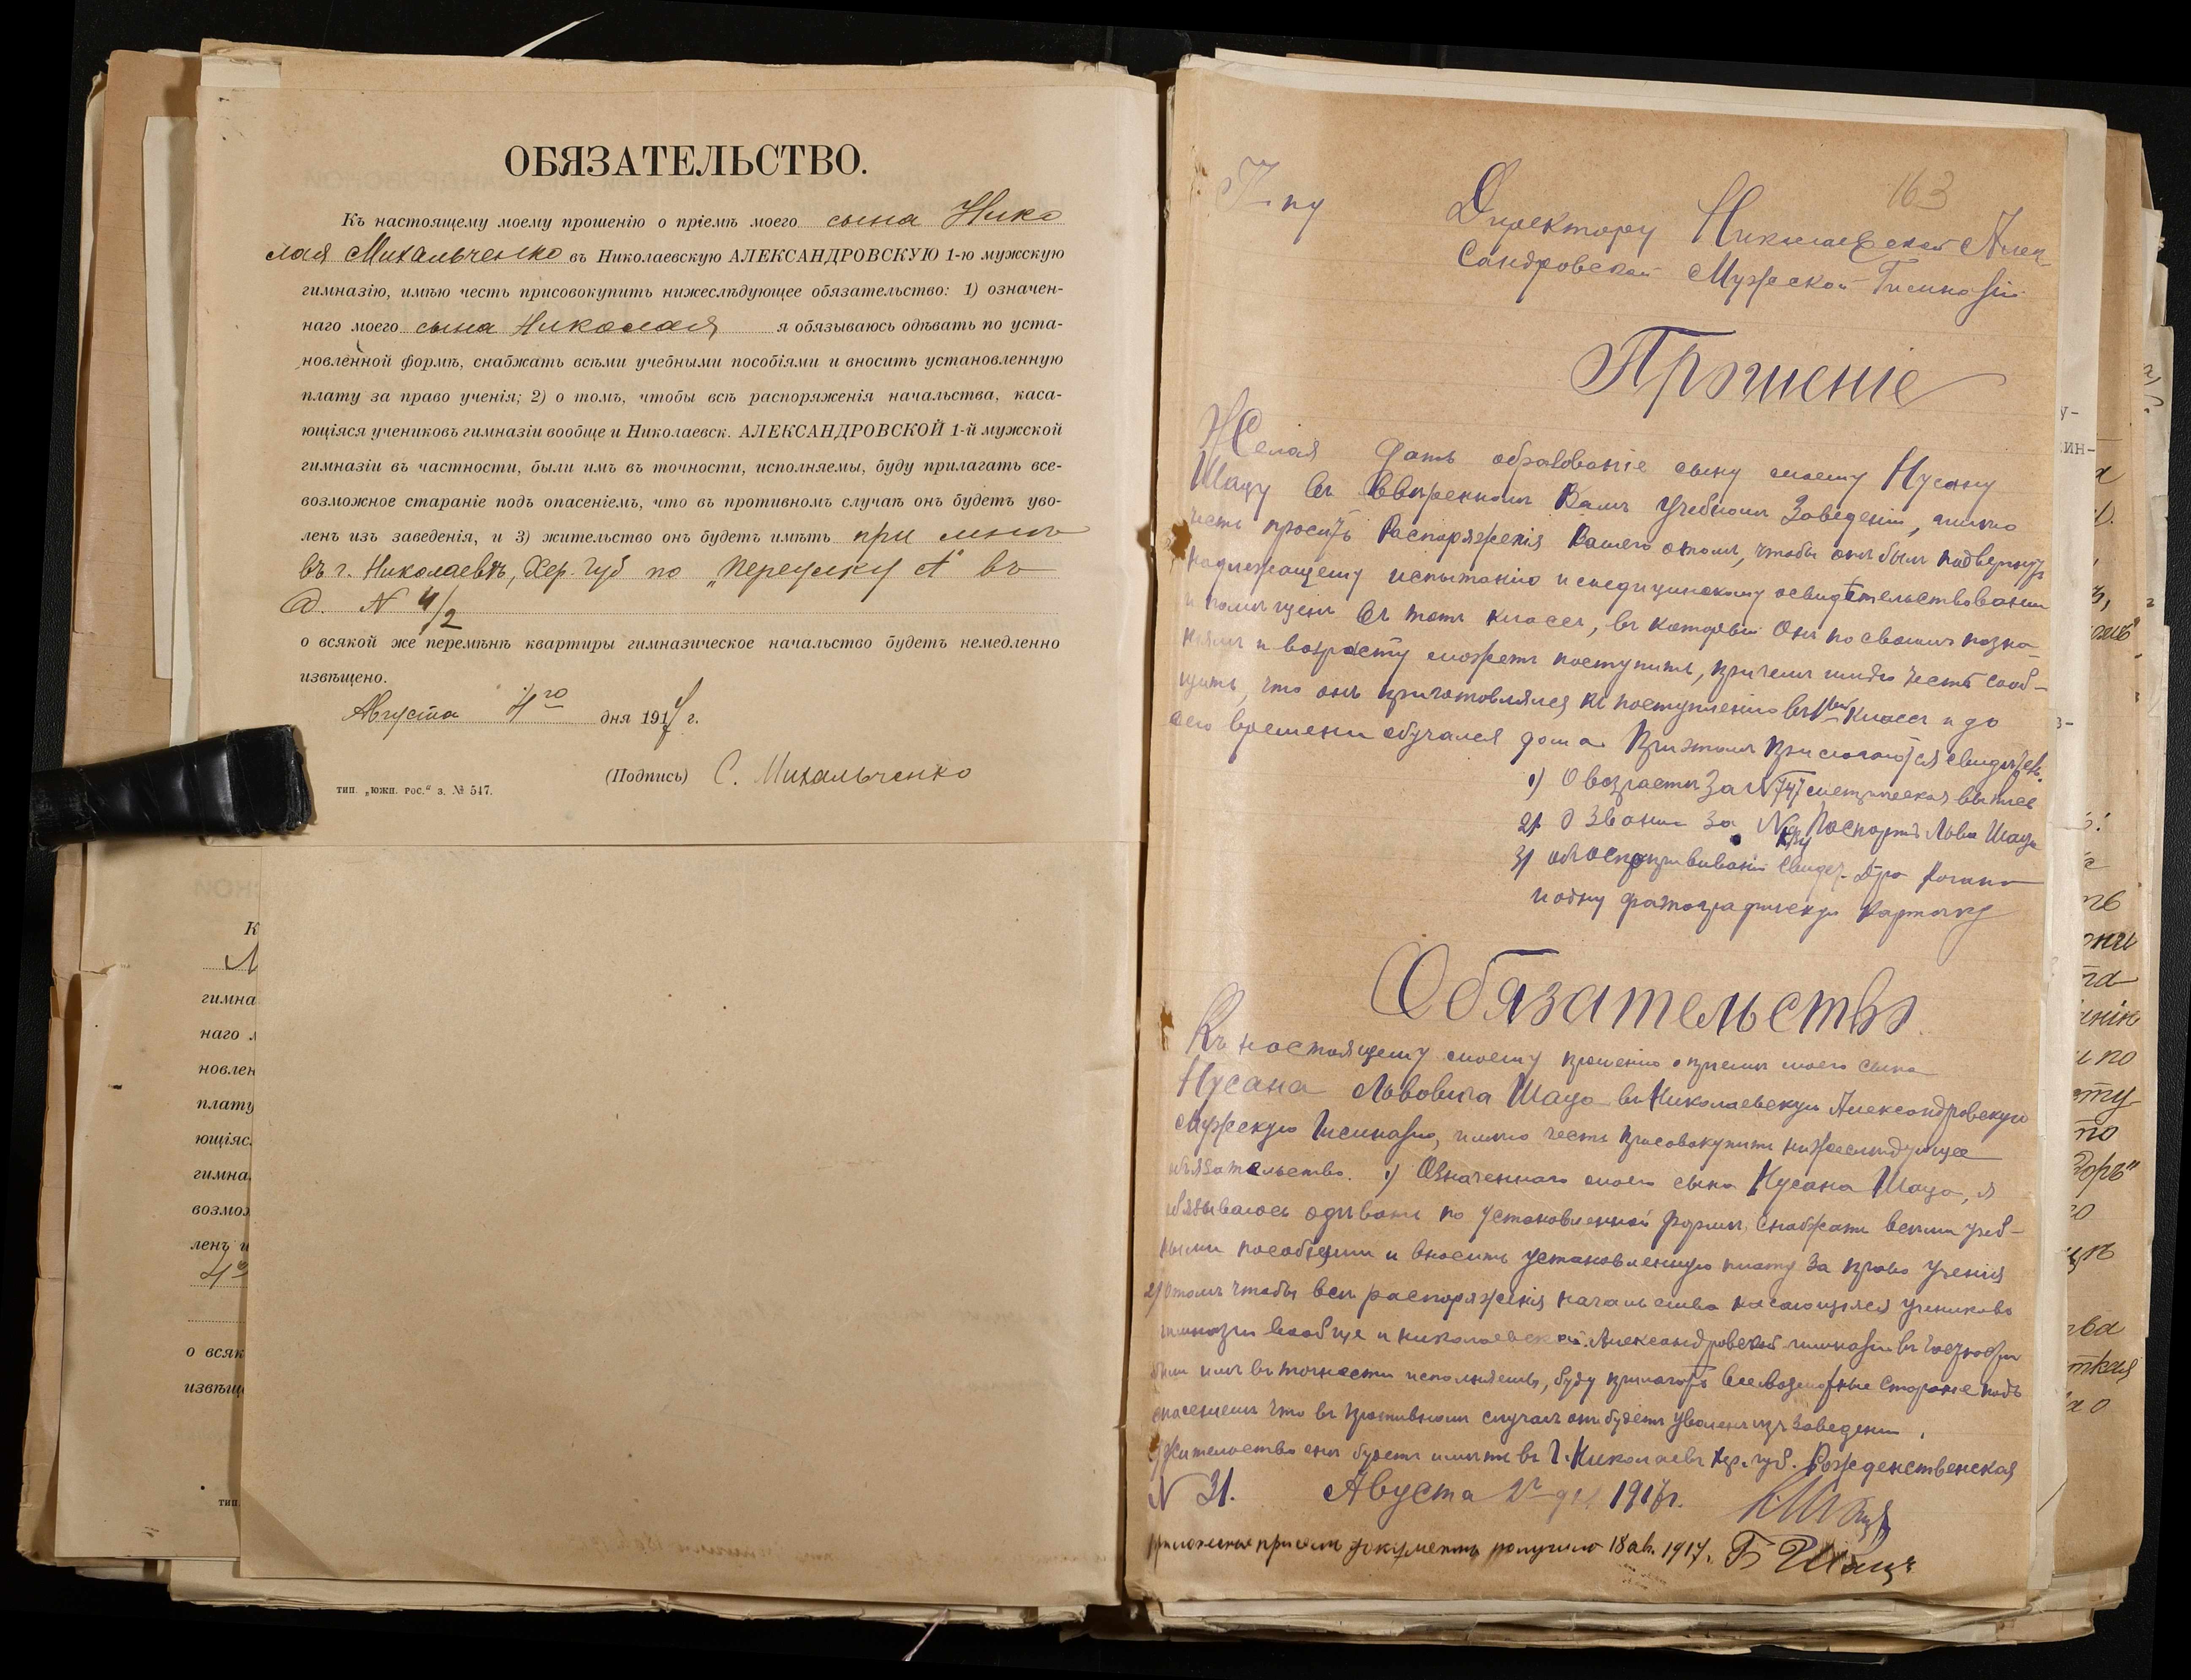 ОБЯЗАТЕЛЬСТВО.
Къ настоящему моему прошенію о пріемѣ моего сына Нико
лая Михальченко въ Николаевскую АЛЕКСАНДРОВСКУЮ 1-ю мужскую
гимназію, имѣю честь присовокупить нижеслѣдующее обязательство: 1) означен-
наго моего сына Николая я обязываюсь одѣвать по уста-
новленной формѣ, снабжать всѣми учебными пособіями и вносить установленную
плату за право ученія; 2) о томъ, чтобы всѣ распоряженія начальства, каса-
ющіяся учениковъ гимназіи вообще и Николаевск. АЛЕКСАНДРОВСКОЙ 1-й мужской
гимназіи въ частности, были имъ въ точности, исполняемы, буду прилагать все-
возможное стараніе подъ опасеніемъ, что въ противномъ случаѣ онъ будетъ уво-
ленъ изъ заведенія, и 3) жительство онъ будетъ имѣть при мнѣ
въ г. Николаевѣ, Хер. Губ по „переулку А" въ
д. N 4/2
о всякой же перемѣнѣ квартиры гимназическое начальство будетъ немедленно
извѣщено.
Августа 4го дня 1917 г.
(Подпись) С. Михальченко
тип. „южн. рос." з. № 547.
К
гимна
наго
новлен
плату
ющіяс
гимна
возмож
ленъ и
о всяк
извѣще
тип
163
Директору Николаевской Алек
сандровской Мужской Гимназіи
Прошеніе
Желая дать образованіе сыну моему Нусану
Шацу въ ввѣренномъ Вамъ Учебномъ Заведеніи, имѣю
честь просить Распоряженія Вашего о томъ, чтобы онъ былъ подвергнутъ
надлежащему испытанію и медицинскому освидѣтельствованію
и помѣщенъ въ тотъ классъ, въ который Онъ по своимъ позна-
ніямъ и возрасту можетъ поступить, причемъ имѣю честь сооб-
щить, что онъ приготовлялся къ поступленію въ классъ и до
сего времени обучался дома. При этомъ прилагаются свидѣтел.
1) О возрастѣ За N 747 метрическая выпись
2) О званіи за N Паспортъ Льва Шаца
3) объ оспопрививаніи свидет. Д-ра
и одну фотографическую карточку
Обязательство
Къ настоящему моему прошенію о пріемѣ моего сына
Нусана Львовича Шаца въ Николаевскую Александровскую
мужскую Гимназію, имѣю честь присовокупить нижеслѣдующее
обязательство. 1) Означеннаго моего сына Нусана Шаца, я
обязываюсь одѣвать по установленной формѣ, снабжать всѣми учеб-
ными пособіями и вносить установленную плату за право ученія
2) О томъ чтобы всѣ распоряженія начальства касающіяся учениковъ
гимназіи вообще и николаевской Александровской гимназіи въ частности
были имъ въ точности исполняемы, буду прилагать всевозможные стараніе подъ
опасеніемъ что въ противномъ случаѣ онъ будетъ уволенъ изъ заведенія.
3) Жительство онъ будетъ имѣть въ г. Николаевѣ Хер. губ. Рождественская
N 31. Августа 1917 г.
приложенные при семъ документы получилъ 18 ав. 1917. Б Шацъ